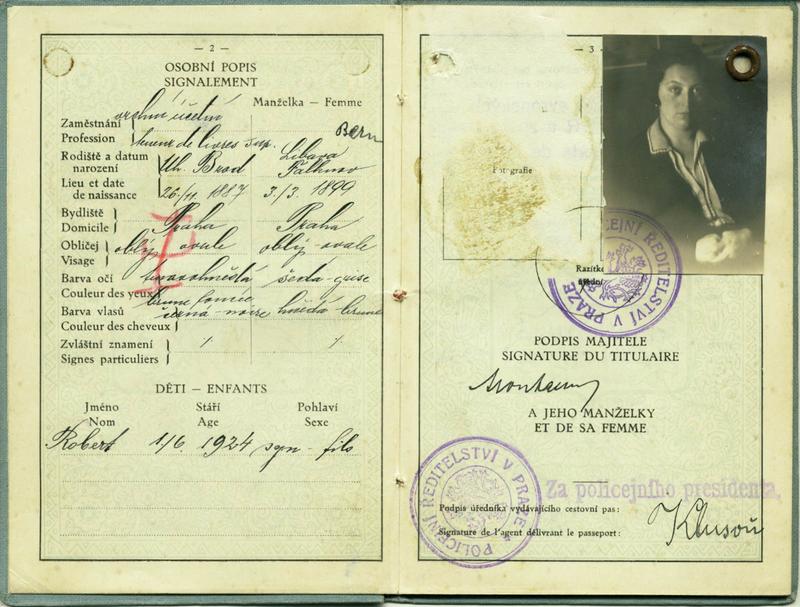 — 2 —
OSOBNÍ POPIS
SIGNALEMENT
Manželka – Femme
Zaměstnání
vrchní účetní
Profession
teneur de livres sup.
Bern
Rodiště a datum
narození
Uh. Brod
Libava
Lieu et date
de naissance
26/11 1887
3/3 1899
Bydliště
Domicile
Praha
Praha
Obličej
Visage
oblý ovale
oblý-ovale
Barva očí
tmavohnědá
šedá-grise
Couleur des yeux
brune foncée
Barva vlasů
černá-noire
hnědá-brune
Couleur des cheveux
Zvláštní znamení
Signes particuliers
DĚTI – ENFANTS
Jméno Stáří Pohlaví
Nom Age Sexe
Robert 1/6 1924 syn - fils
— 3 —
Fotografie
Razítko
úřední
POLICEJNÍ ŘEDITELSTVÍ V PRAZE
PODPIS MAJITELE
SIGNATURE DU TITULAIRE
A JEHO MANŽELKY
ET DE SA FEMME
Za policejního presidenta,
Podpis úředníka vydávajícího cestovní pas:
Signature de l'agent délivrant le passeport:
POLICEJNÍ ŘEDITELSTVÍ V PRAZE